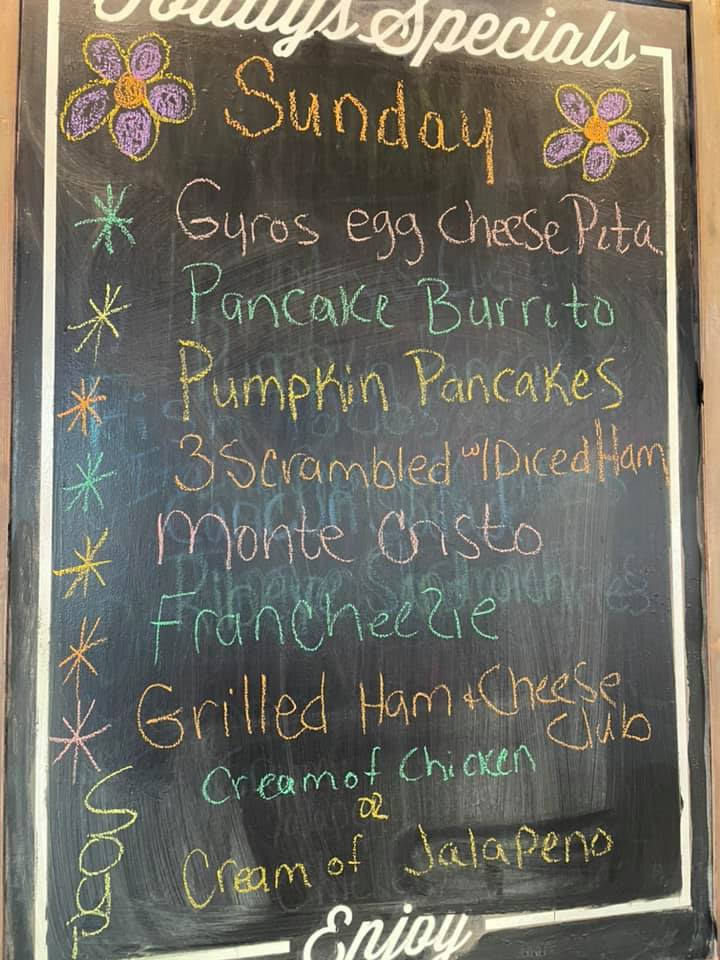 Today's Specials
Sunday
Gyros egg cheese Pita
Pancake Burrito
Pumpkin Pancakes
3 Scrambled w/ Diced Ham
Monte Cristo
Francheezie
Grilled Ham + Cheese
Club
Soup
Cream of Chicken
or
Cream of Jalapeno
Enjoy